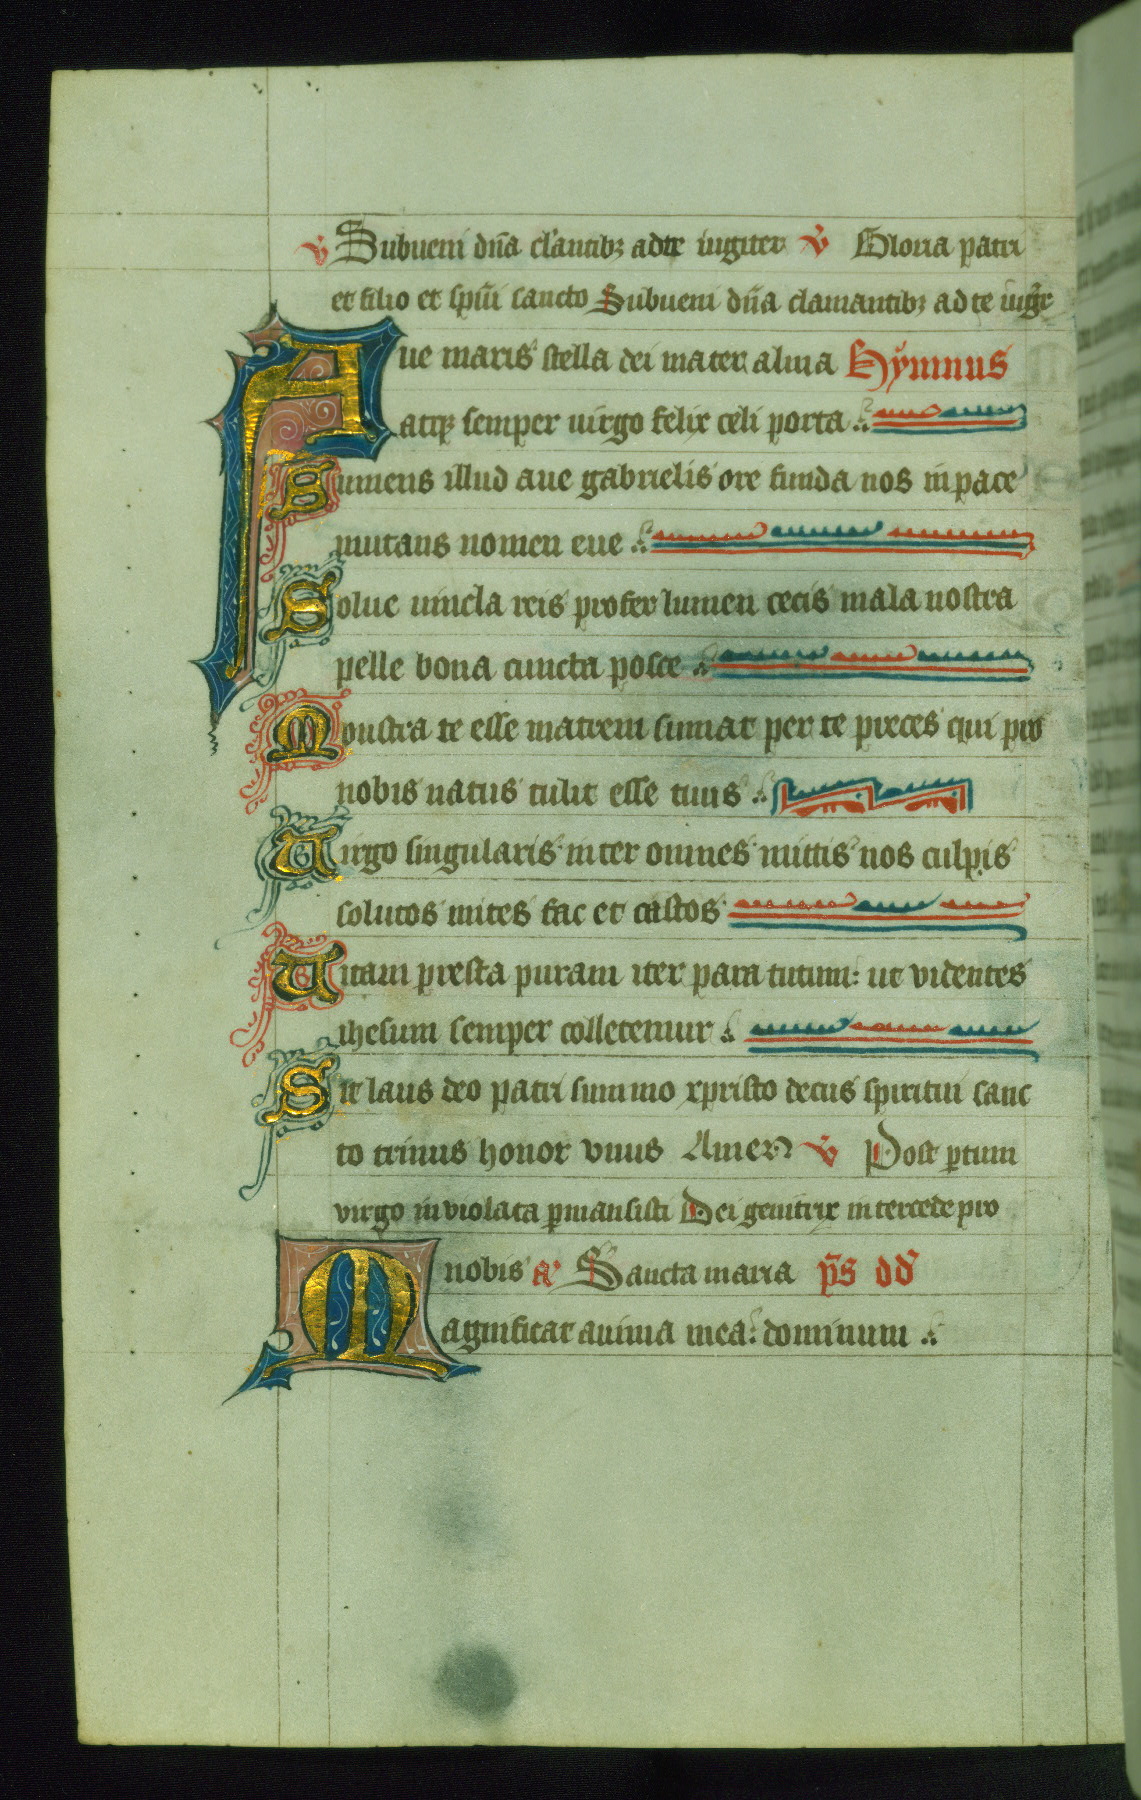 v Subueni dn̄a cl'antibꝫ ad te iugiter v Gloria patri
et filio et sp̄ui sancto Subueni dn̄a clamantibꝫ ad te iugr̄
Aue maris stella dei mater alma Hẏmnus
atqꝫ semper uirgo felix celi porta
Sumens illud aue gabrielis ore funda nos in pace
mutans nomen eue
Solue uincla reis profer lumen cecis mala nostra
pelle bona cuncta posce
Monstra te esse matrem sumat per te preces qui pro
nobis natus tulit esse tuus
Uirgo singularis inter omnes mittis nos culpis
solutos mites fac et castos
Uitam presta puram iter para tutum: ut videntes
ihesum semper colletemur
Sit laus deo patri summo xpristo decus spiritui sanc
to trinus honor vnus Amen v Post ꝑtum
virgo inviolata ꝑmansisti Dei genitrix intercede pro
nobis a Sancta maria p̄s dd
Magnificat anima mea: dominum